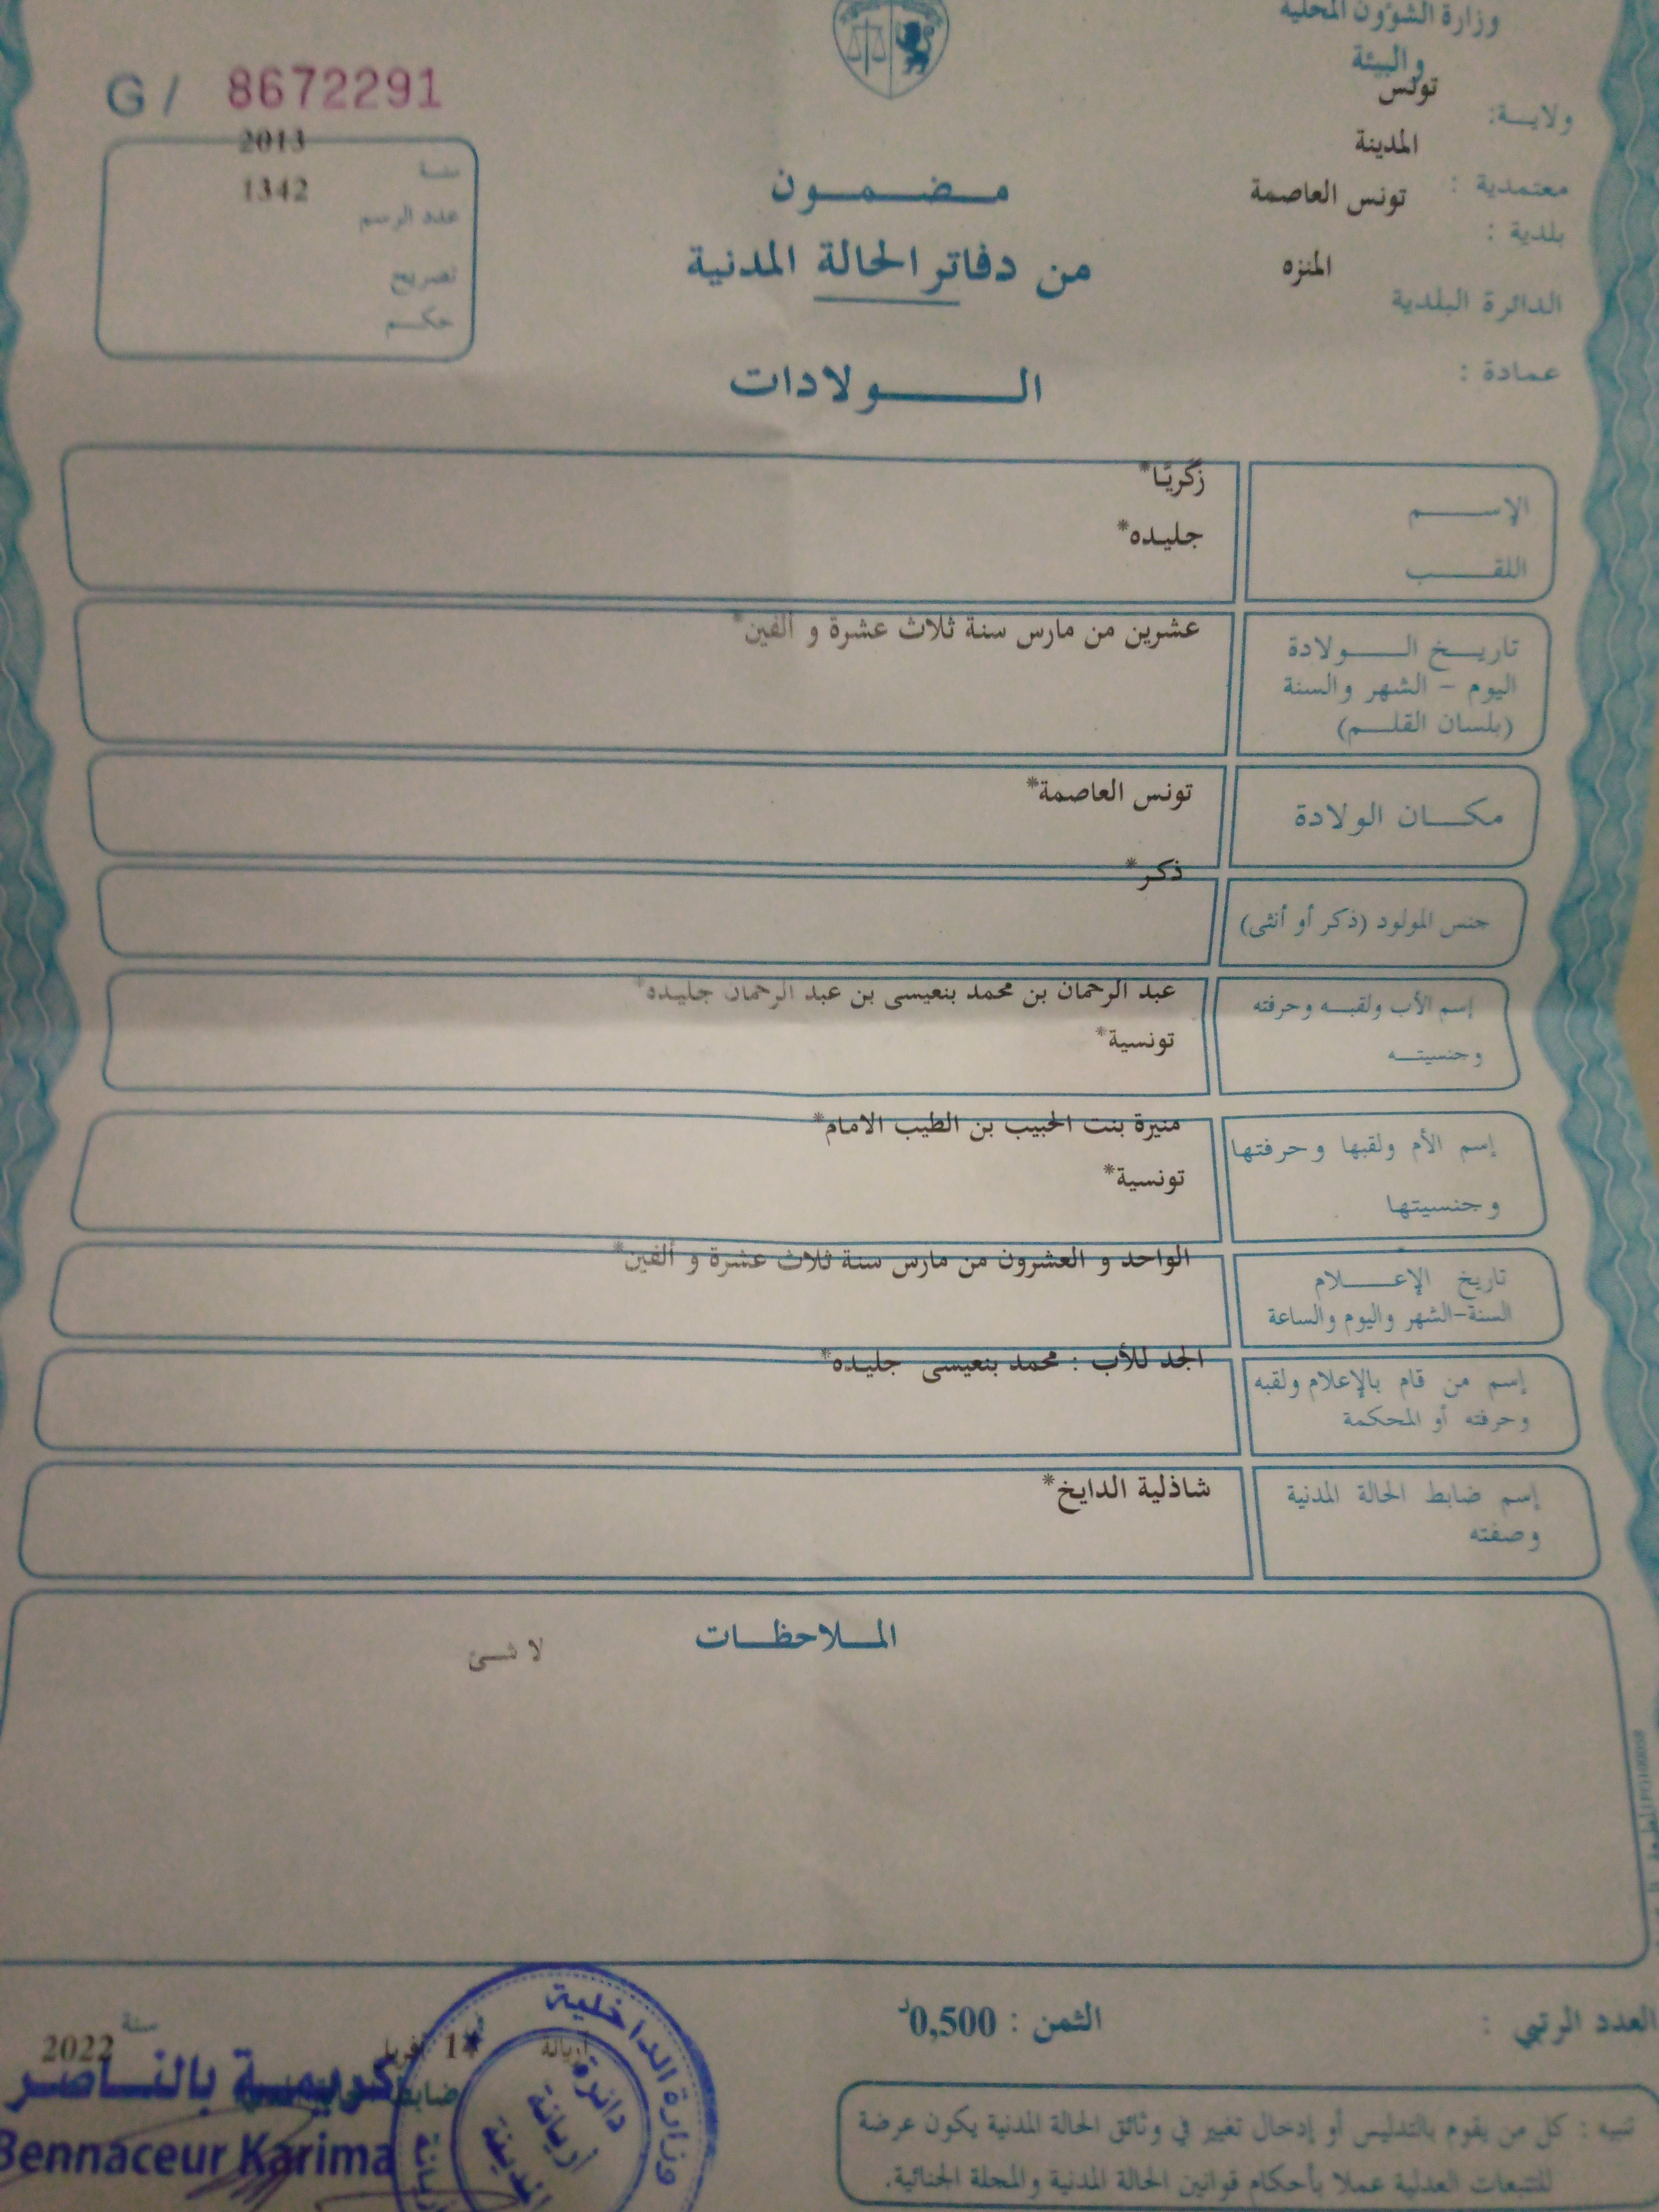 وزارة الشؤون المحلية
والبيئة
ولايـــة: تونس
المدينة
معتمدية : تونس العاصمة
بلدية :
المنزه
الدائرة البلدية
عمادة :
G / 8672291
2013
سنة
1342
عدد الرسم
تصريح
حكـــم
مـــضـــمـــون
من دفاتر الحالة المدنية
الـــــولادات
الإســـــم زكريّا*
اللقـــــب جليده*
تاريـــخ الـــــولادة عشرين من مارس سنة ثلاث عشرة و ألفين*
اليوم – الشهر والسنة
(بلسان القلـــم)
مكـــان الولادة تونس العاصمة*
جنس المولود (ذكر أو أنثى) ذكر*
إسم الأب ولقبـــه وحرفته عبد الرحمان بن محمد بنعيسى بن عبد الرحمان جليده*
وجنسيتـــه تونسية*
إسم الأم ولقبها وحرفتها منيرة بنت الحبيب بن الطيب الامام*
وجنسيتها تونسية*
تاريخ الإعـــــلام الواحد و العشرون من مارس سنة ثلاث عشرة و ألفين*
السنة-الشهر واليوم والساعة
إسم من قام بالإعلام ولقبه الجد للأب : محمد بنعيسى جليده*
وحرفته أو المحكمة
إسم ضابط الحالة المدنية شاذلية الدايخ*
وصفته
المـــلاحظـــات
لا شـــئ
العدد الرتبي :
الثمن : 0,500د
أريانة
أفريل
سنة
2022
ضابط
كريمـــة بالنـــاصـــر
Bennaceur Karima
وزارة الداخلية
دائرة
أريانة
المدينة
تنبيه : كل من يقوم بالتدليس أو إدخال تغيير في وثائق الحالة المدنية يكون عرضة
للتتبعات العدلية عملا بأحكام قوانين الحالة المدنية والمجلة الجنائية.